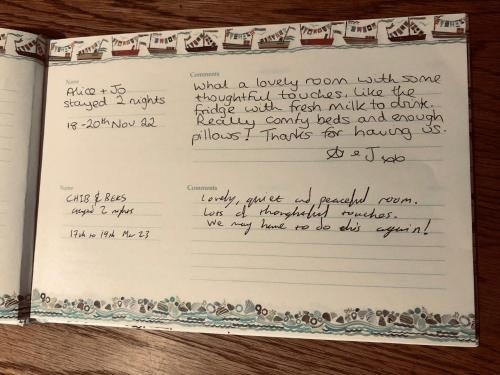 Name
Alice + Jo
stayed 2 nights
18-20th Nov 22
Comments
What a lovely room with some
thoughtful touches, like the
fridge with fresh milk to drink.
Really comfy beds and enough
pillows! Thanks for having us.
A & J xoxo
Name
CHIB & BEES
stayed 2 nights
17th to 19th Mar 23
Comments
Lovely, quiet and peaceful room.
Lots of thoughtful touches.
We may have to do this again!